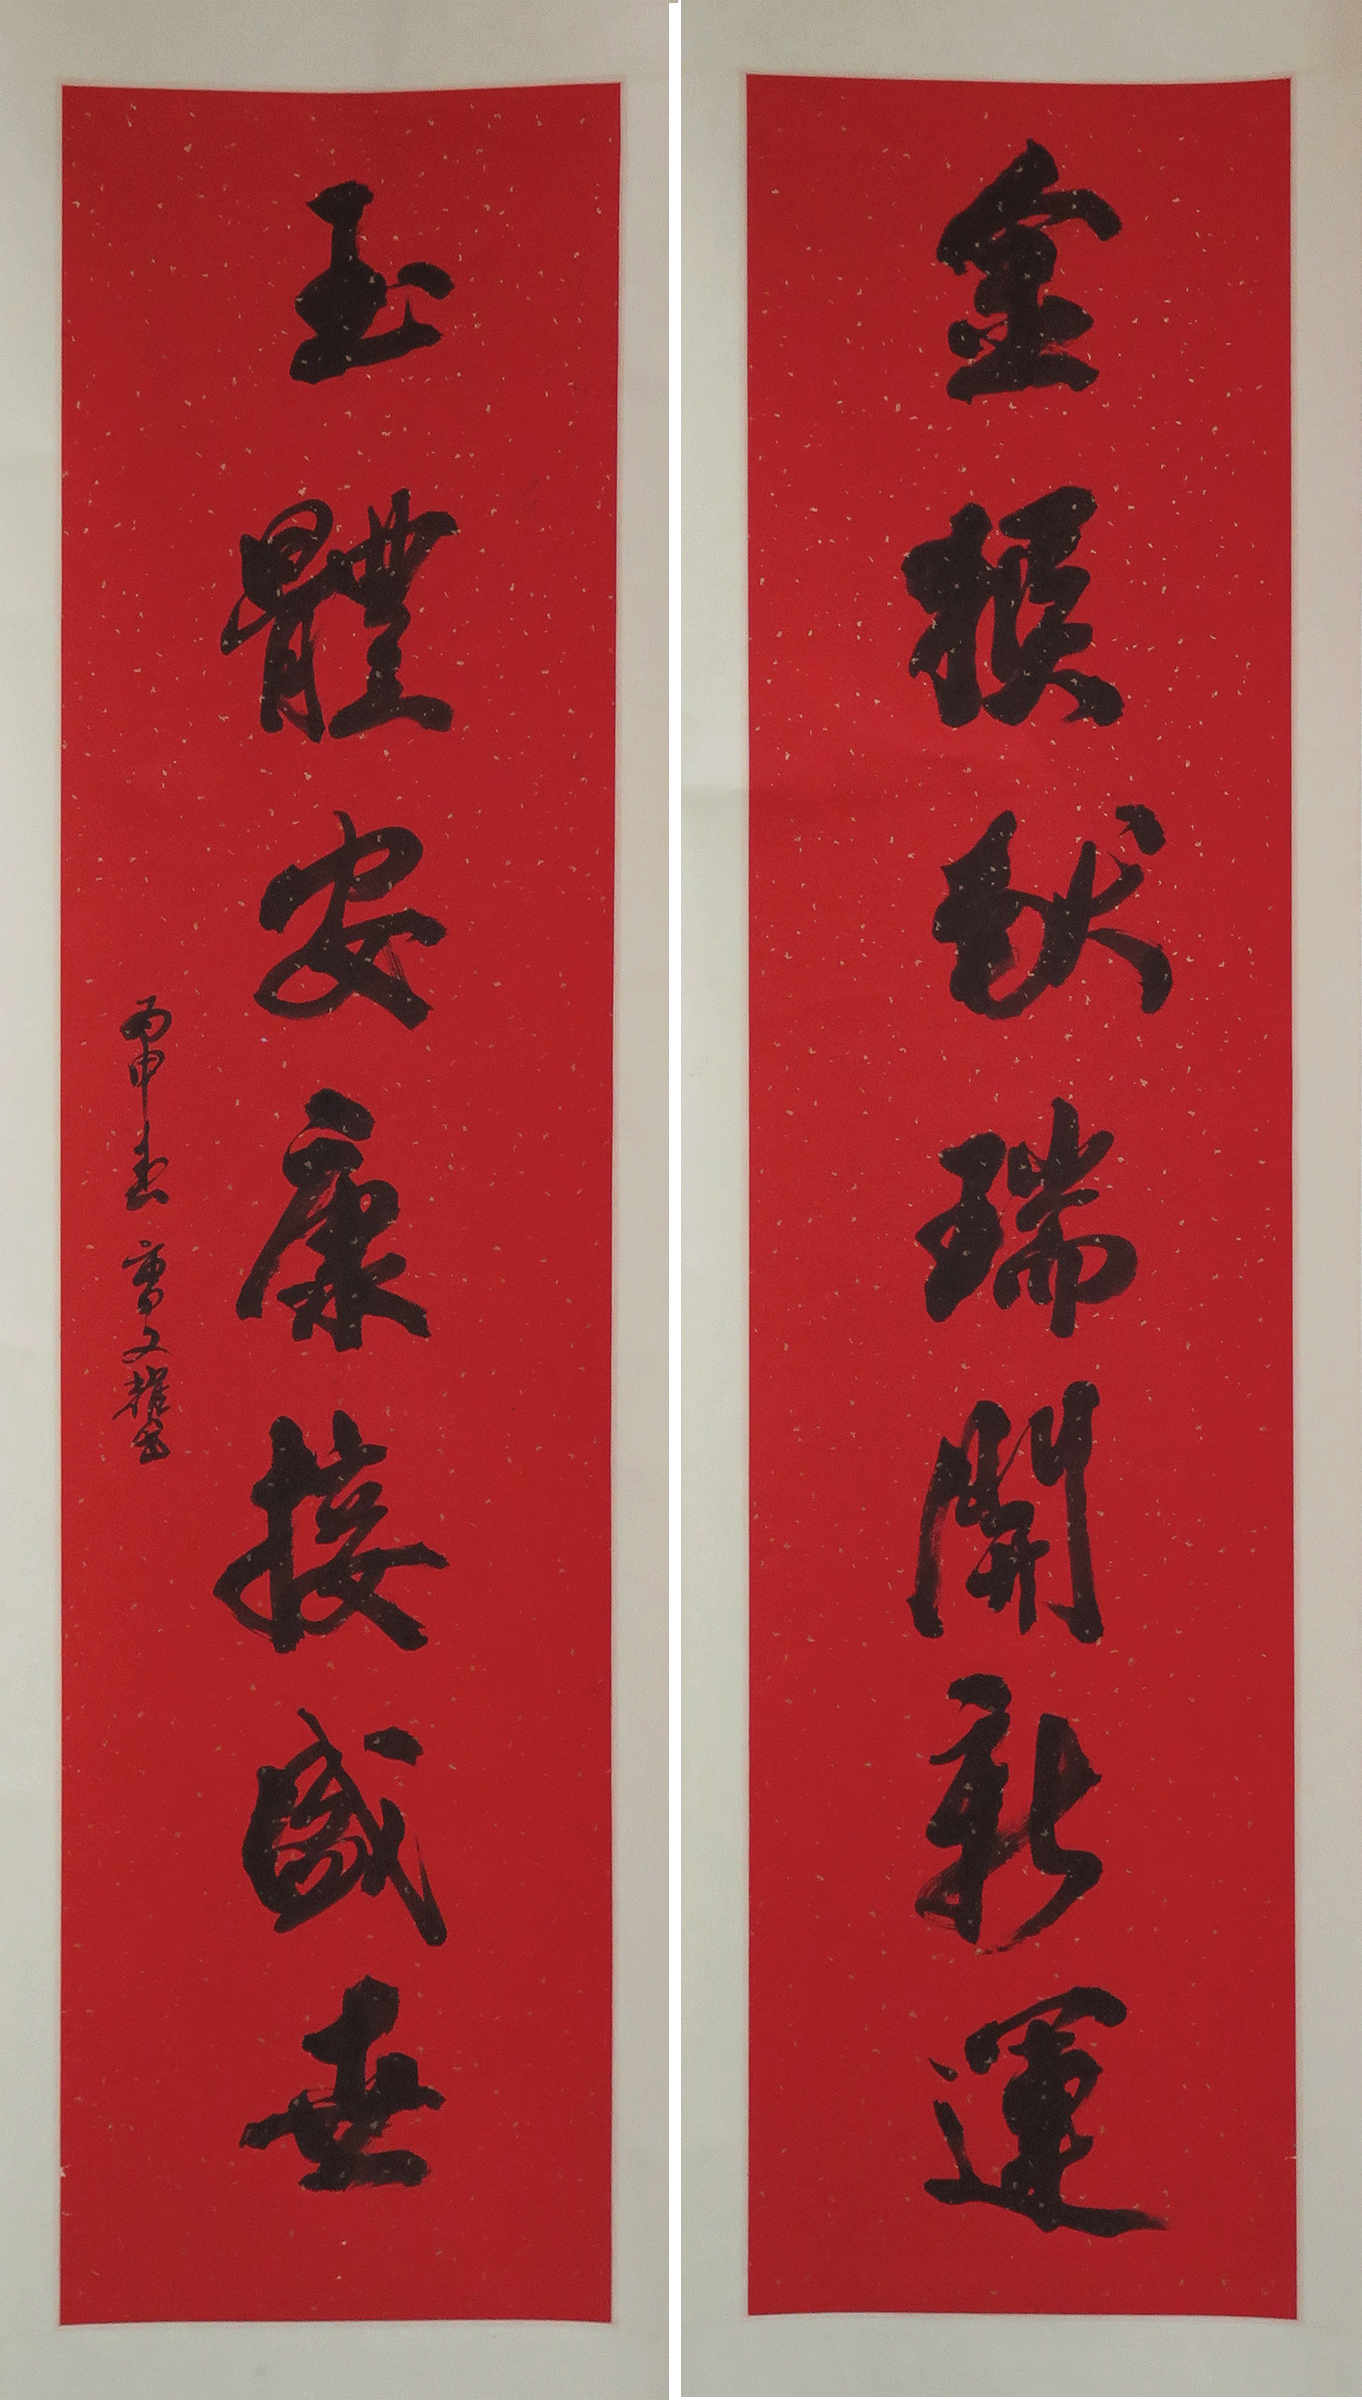 金猴献瑞開新運
玉體安康接盛世
丙申春 曹文權書